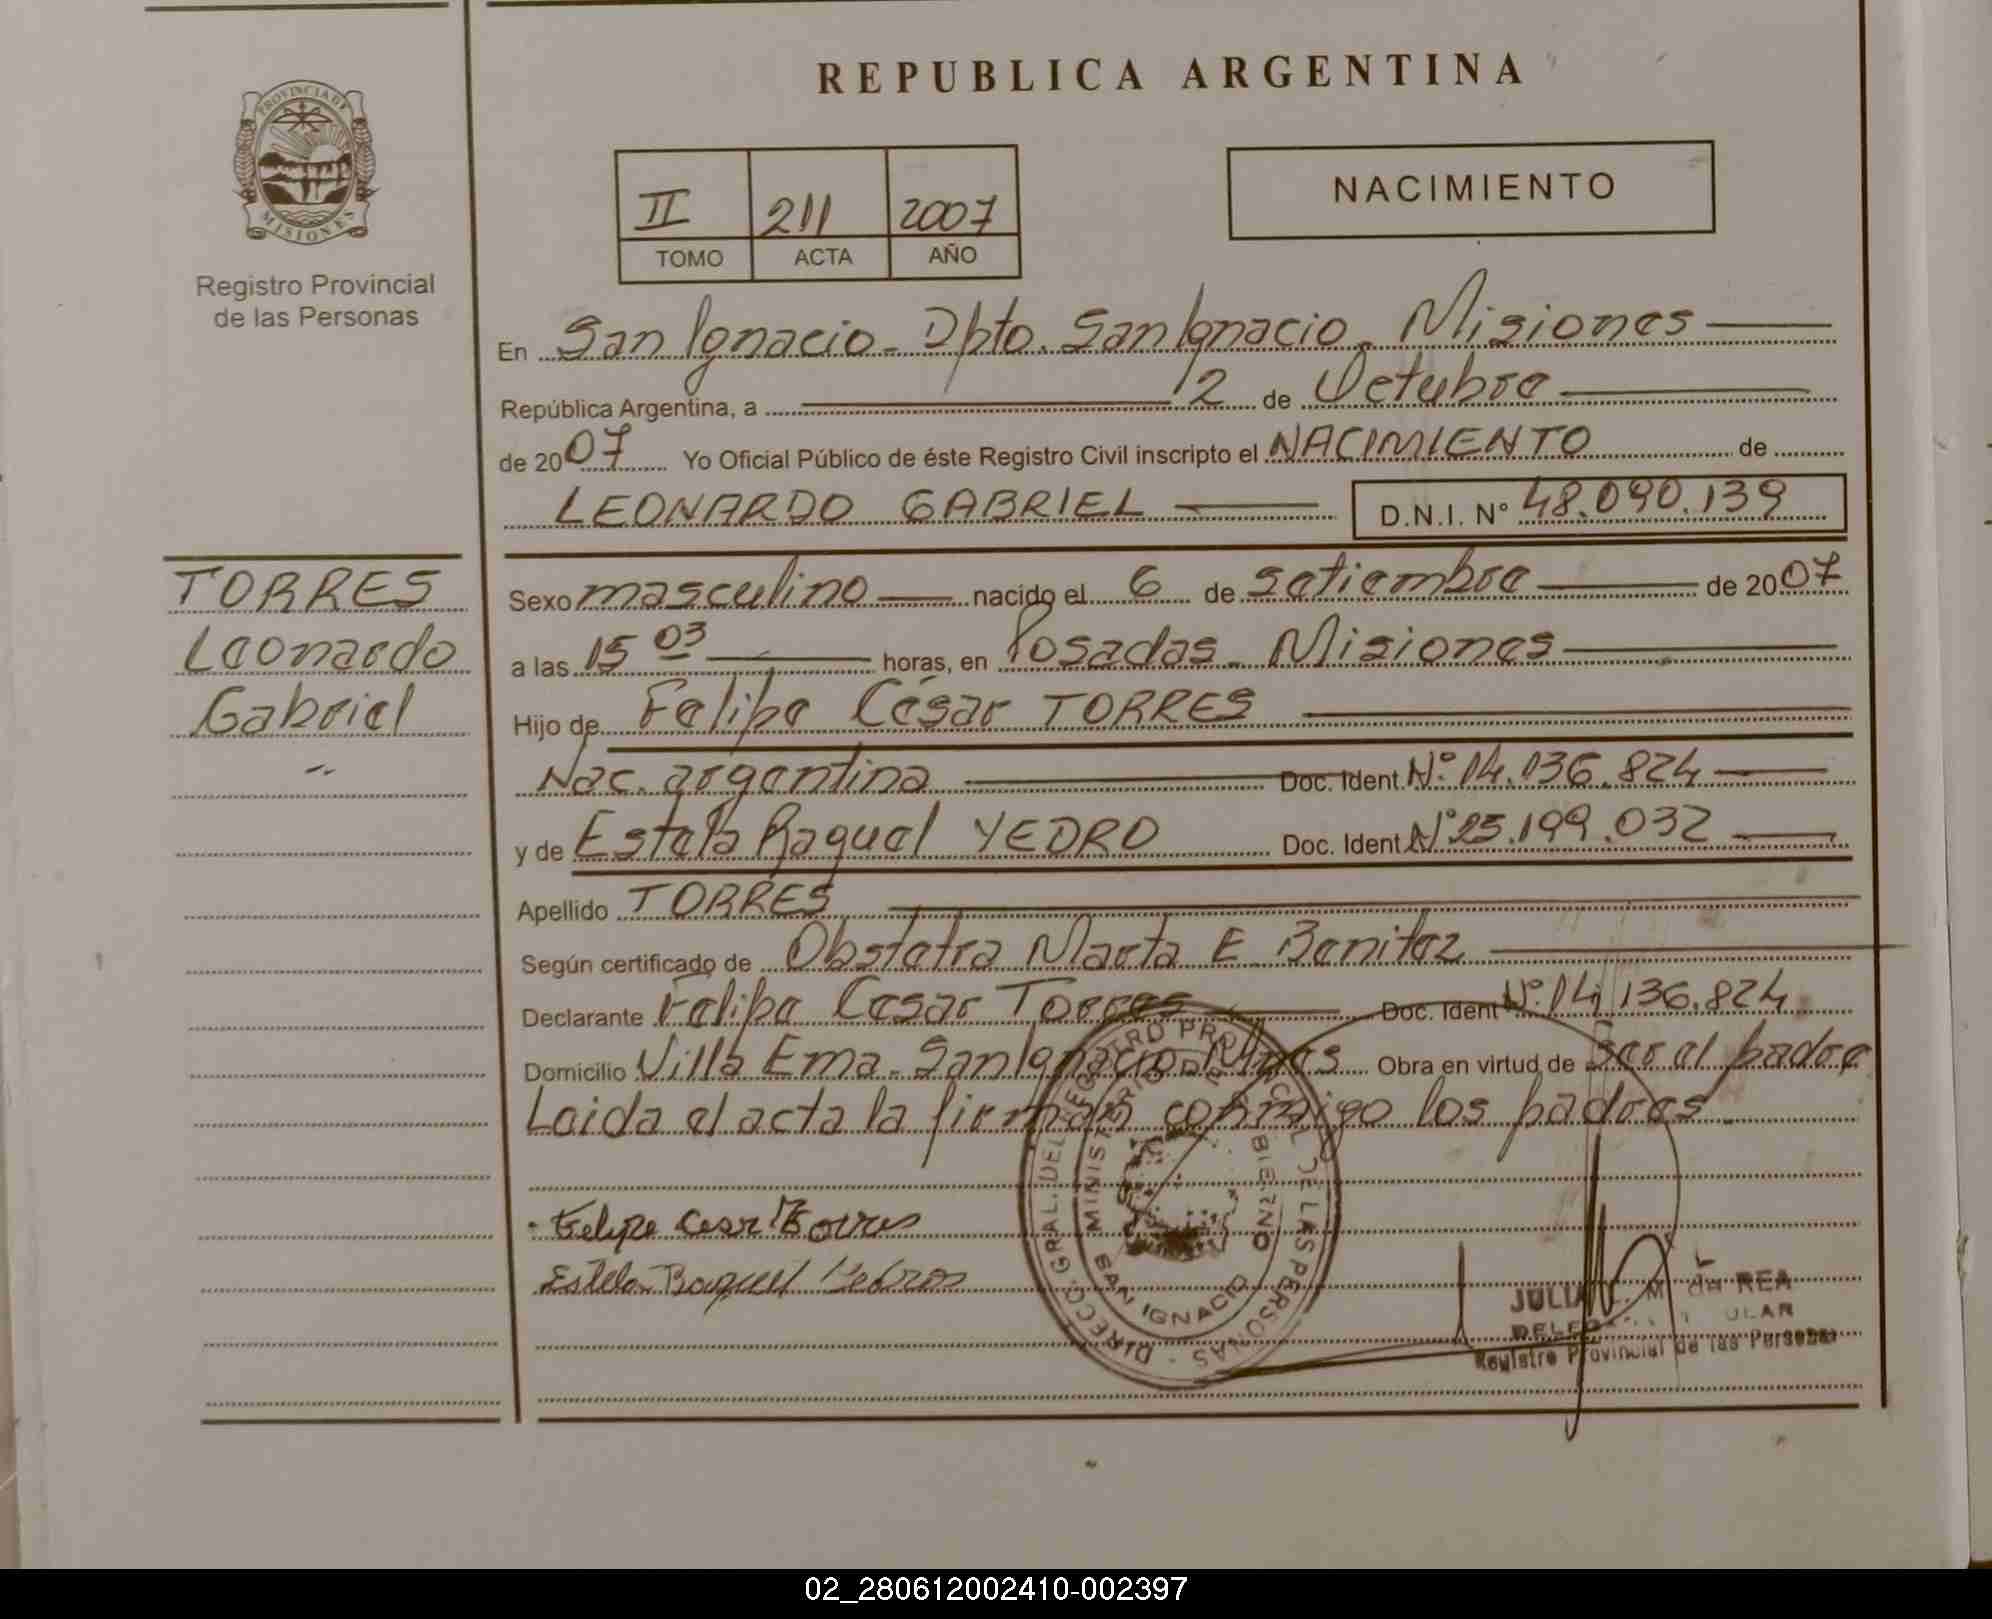 REPUBLICA ARGENTINA
PROVINCIA DE
MISIONES
Registro Provincial
de las Personas
II 211 2007
TOMO ACTA AÑO
NACIMIENTO
En San Ignacio - Dpto. San Ignacio - Misiones
República Argentina, a 12 de Octubre
de 2007 Yo Oficial Público de éste Registro Civil inscripto el NACIMIENTO de
LEONARDO GABRIEL D.N.I. N° 48.090.139
TORRES
Leonardo
Gabriel
Sexo masculino nacido el 6 de setiembre de 2007
a las 15 03 horas, en Posadas - Misiones
Hijo de Felipe César TORRES
Nac. argentina Doc. Ident. N° 14.136.824
y de Estela Raquel YEDRO Doc. Ident N° 25.199.032
Apellido TORRES
Según certificado de Obstetra Marta E. Benitez
Declarante Felipe Cesar Torres Doc. Ident N° 14.136.824
Domicilio Villa Ema - San Ignacio - Mnes Obra en virtud de Ser el padre
Leida el acta la firman conmigo los padres
Felipe Cesar Torres
Estela Raquel
DIRECC. GRAL. DEL REGISTRO PROVINCIAL DE LAS PERSONAS
MINISTERIO DE GOBIERNO
SAN IGNACIO
REA
Registro Provincial de las Personas
02_280612002410-002397